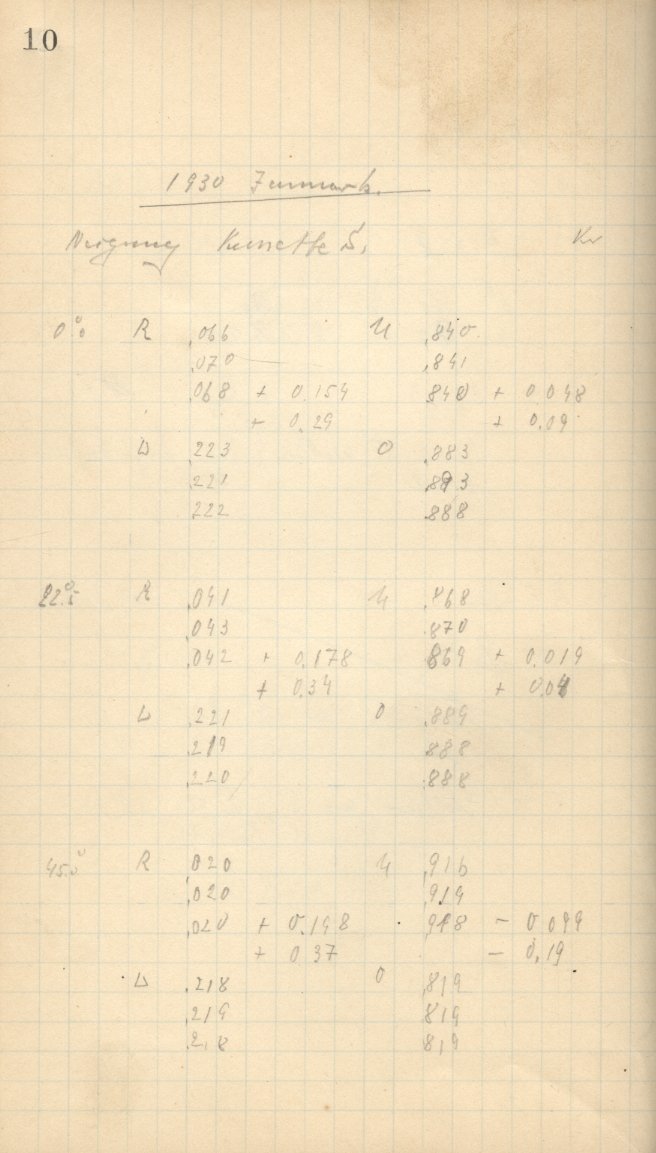 10
1930
Neigung Kassette S. Kr
0°.0 R ,066 U ,840
,070 ,841
,068 + 0.154 840 + 0.048
+ 0.29 + 0.09
L ,223 O ,883
,221 ,893
,222 ,888
22°.5 R ,041 U ,868
,043 ,870
,042 + 0.178 869 + 0.019
+ 0.34 + 0.04
L ,221 O ,889
,219 888
,220 ,888
45.°0 R ,020 U ,916
,020 ,919
,020 + 0.198 ,918 - 0.099
+ 0.37 - 0.19
L ,218 O ,819
,219 819
,218 819